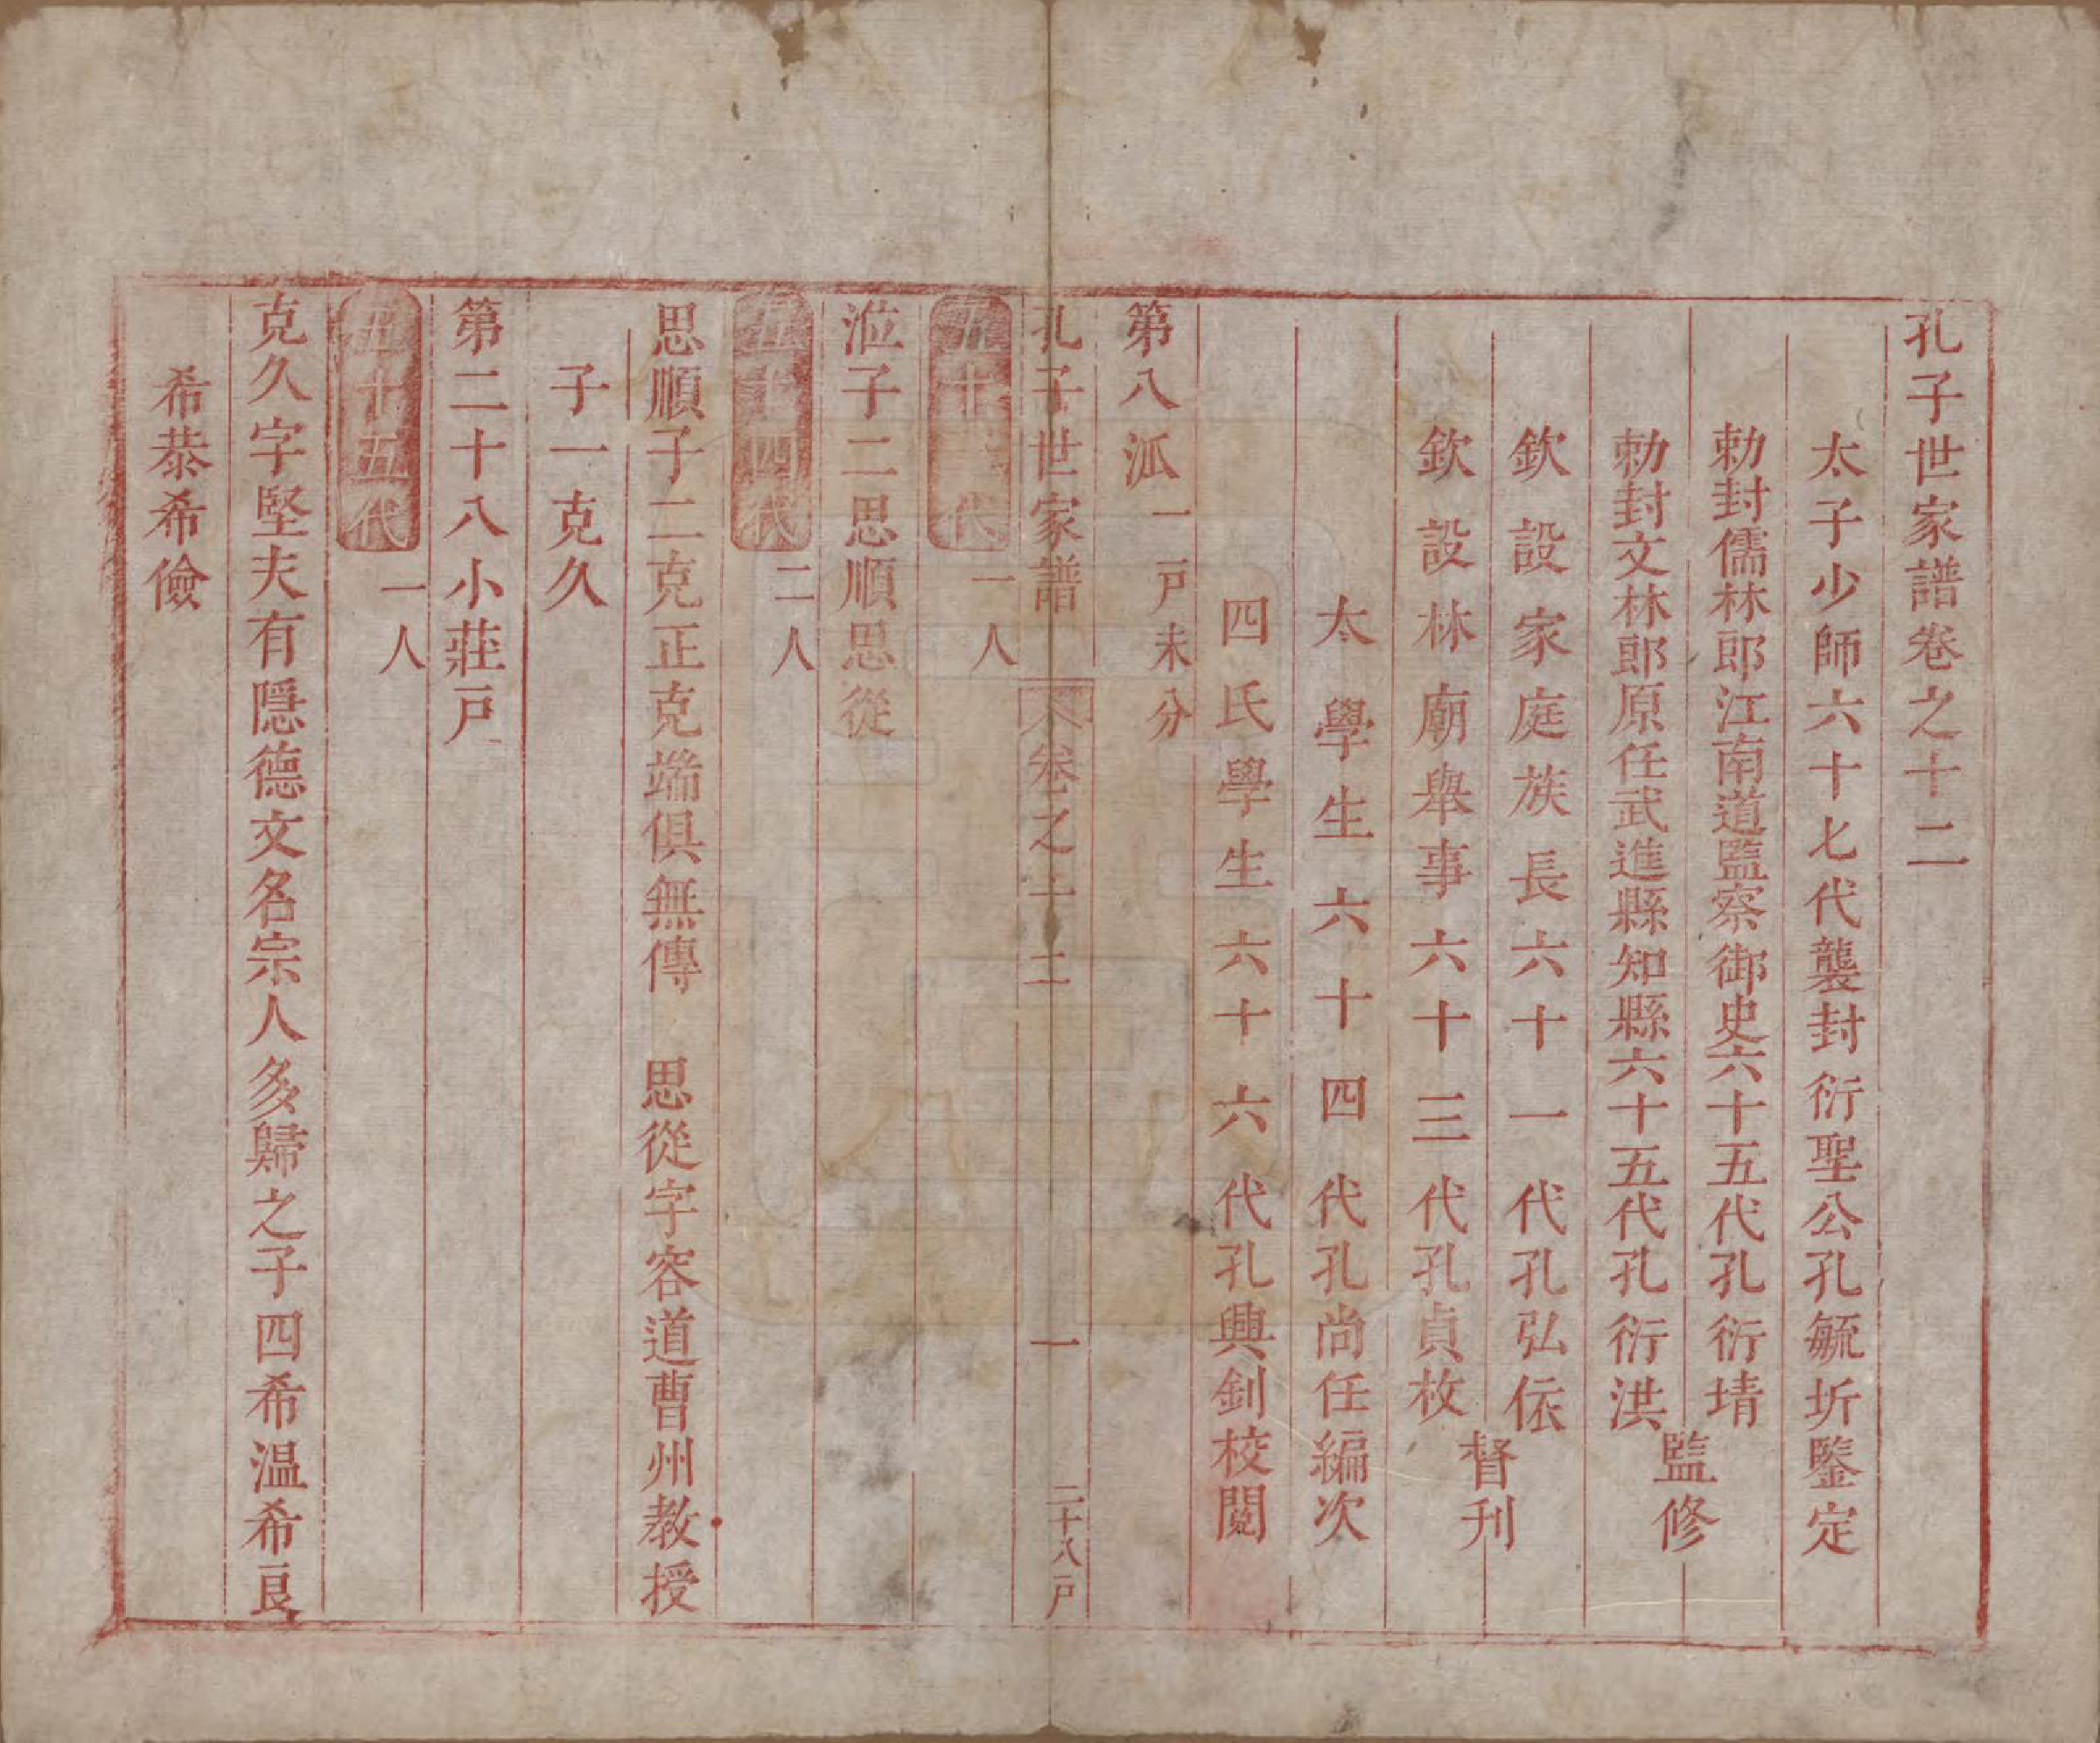 孔子世家譜卷之十二
太子少師六十七代襲封衍聖公孔毓圻鑒定
勅封儒林郎江南道監察御史六十五代孔衍埥
勅封文林郎原任武進縣知縣六十五代孔衍洪
監修
欽設家庭族長六十一代孔弘依
欽設林廟舉事六十三代孔貞枚
督刊
太學生六十四代孔尚任編次
四氏學生六十六代孔興釗校閱
第八派一戸未分
孔子世家譜 卷之十二 一 二十八戸
五十三代 一人
涖子二思順思從
五十四代 二人
思順子二克正克端俱無傳 思從字容道曹州教授
子一克久
第二十八小莊戸
五十五代 一人
克久字堅夫有隱德文名宗人多歸之子四希温希良
希恭希儉